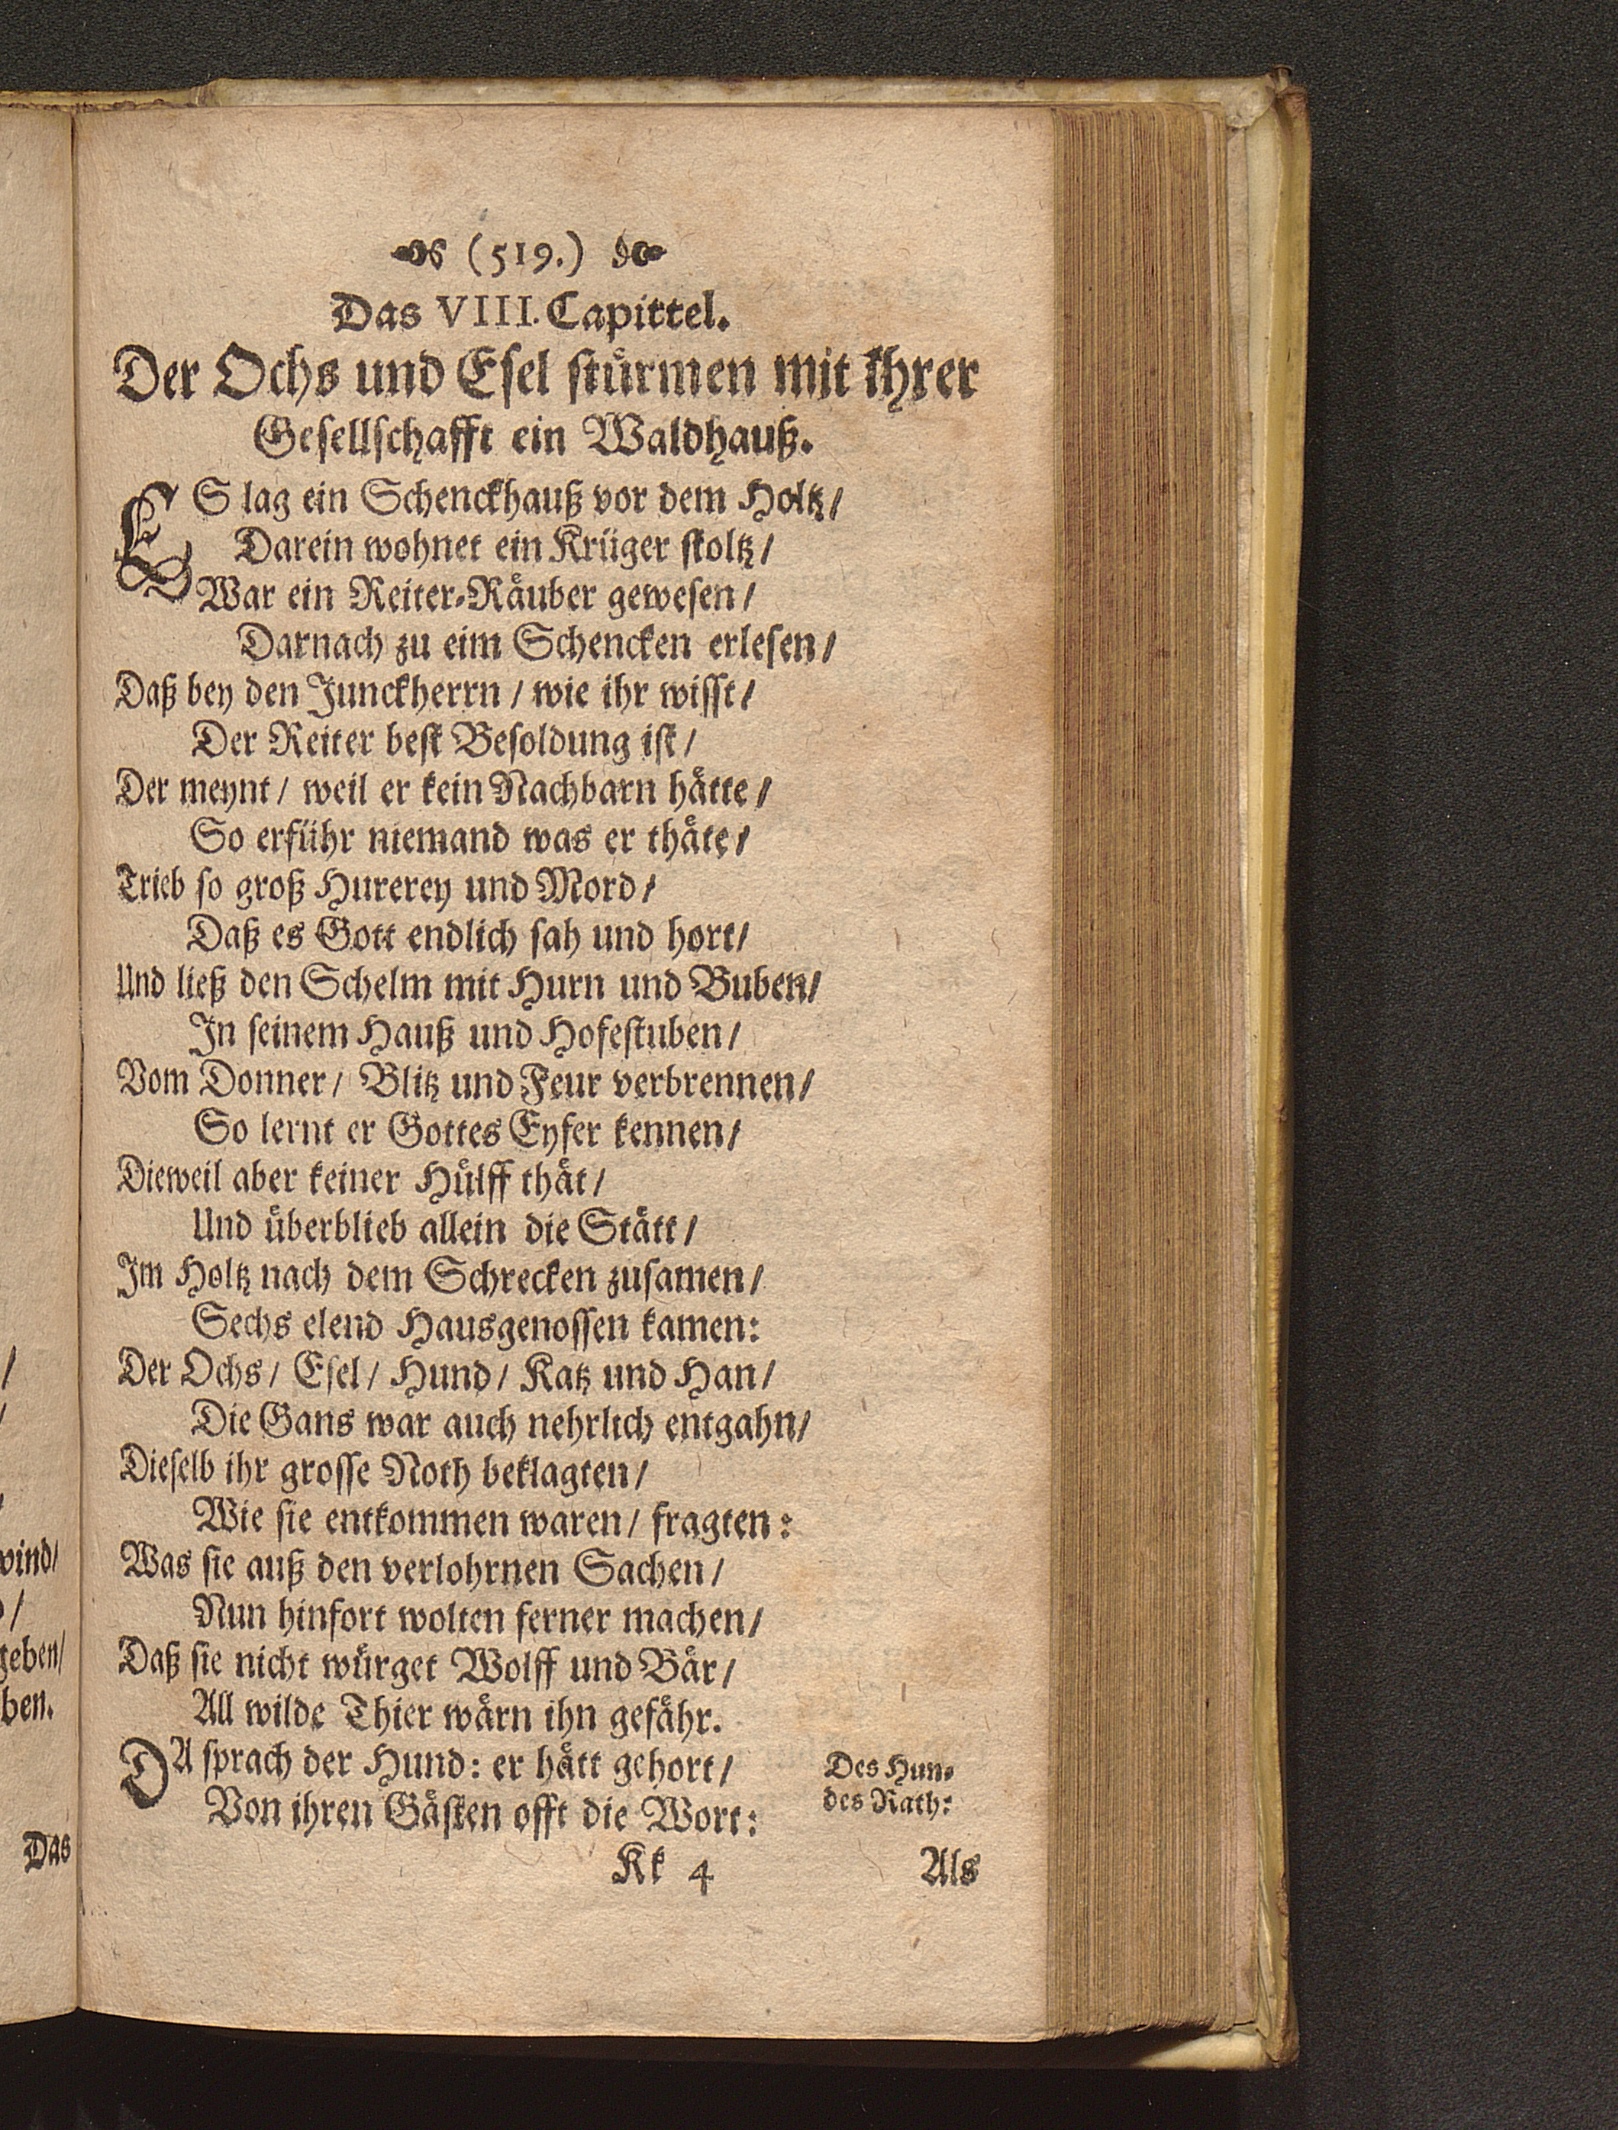 (519.)
Das VIII. Capittel.
Der Ochs und Esel stürmen mit ihrer
Gesellschafft ein Waldhauß.
ES lag ein Schenckhauß vor dem Holtz/
Darein wohnet ein Krüger stoltz/
War ein Reiter-Räuber gewesen/
Darnach zu eim Schencken erlesen/
Daß bey den Junckherrn / wie ihr wisst/
Der Reiter best Besoldung ist/
Der meynt/ weil er kein Nachbarn hätte/
So erführ niemand was er thäte/
Trieb so groß Hurerey und Mord/
Daß es Gott endlich sah und hort/
Und ließ den Schelm mit Hurn und Buben/
In seinem Hauß und Hofestuben/
Vom Donner/ Blitz und Feur verbrennen/
So lernt er Gottes Eyfer kennen/
Dieweil aber keiner Hülff thät/
Und überblieb allein die Stätt/
Im Holtz nach dem Schrecken zusamen/
Sechs elend Hausgenossen kamen:
Der Ochs/ Esel/ Hund/ Katz und Han/
Die Gans war auch nehrlich entgahn/
Dieselb ihr grosse Noth beklagten/
Wie sie entkommen waren/ fragten:
Was sie auß den verlohrnen Sachen/
Nun hinfort wolten ferner machen/
Daß sie nicht würget Wolff und Bär/
All wilde Thier wärn ihn gefähr.
DA sprach der Hund: er hätt gehort/
Von ihren Gästen offt die Wort:
Des Hun-
des Rath:
Kk 4 Als
wind/
geben/
ben.
Das